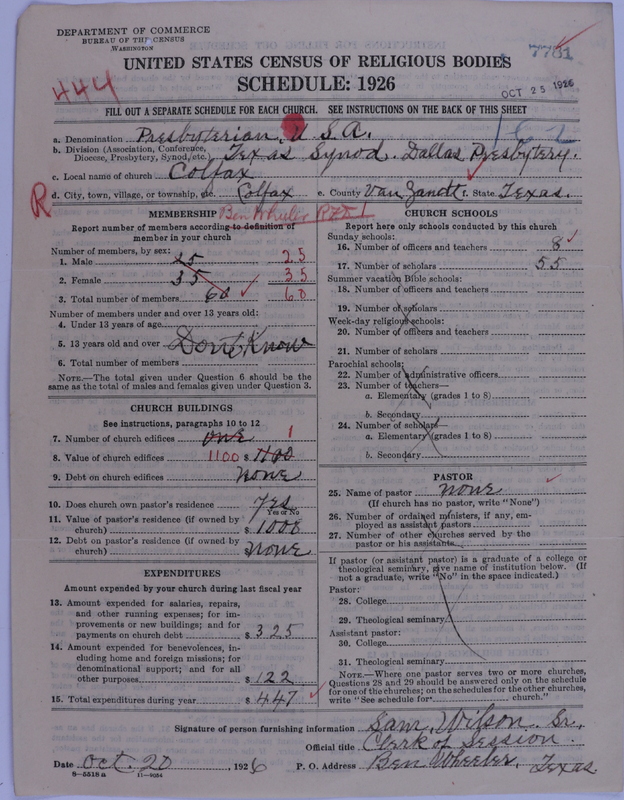 DEPARTMENT OF COMMERCE
BUREAU OF THE CENSUS
WASHINGTON
7781
UNITED STATES CENSUS OF RELIGIOUS BODIES
444
SCHEDULE: 1926
OCT 25 1926
FILL OUT A SEPARATE SCHEDULE FOR EACH CHURCH. SEE INSTRUCTIONS ON THE BACK OF THIS SHEET
a. Denomination Presbyterian, U S A.
b. Division (Association, Conference, Diocese, Presbytery, Synod, etc.) Texas Synod. Dallas Presbytery.
c. Local name of church Colfax
R
d. City, town, village, or township, etc. Colfax e. County Van Zandt f. State Texas.
MEMBERSHIP Ben Wheeler RFD 1
Report number of members according to definition of
member in your church
Number of members, by sex:
1. Male 25 25
2. Female 35 35
3. Total number of members 60 60
Number of members under and over 13 years old:
4. Under 13 years of age
5. 13 years old and over Dont Know
6. Total number of members
NOTE.—The total given under Question 6 should be the
same as the total of males and females given under Question 3.
CHURCH BUILDINGS
See instructions, paragraphs 10 to 12
7. Number of church edifices one 1
8. Value of church edifices 1100 $ 1100
9. Debt on church edifices none
10. Does church own pastor's residence yes
Yes or No
11. Value of pastor's residence (if owned by
church) $ 1000
12. Debt on pastor's residence (if owned by
church) none
EXPENDITURES
Amount expended by your church during last fiscal year
13. Amount expended for salaries, repairs,
and other running expenses; for im-
provements or new buildings; and for
payments on church debt $ 325
14. Amount expended for benevolences, in-
cluding home and foreign missions; for
denominational support; and for all
other purposes $ 122
15. Total expenditures during year $ 447
CHURCH SCHOOLS
Report here only schools conducted by this church
Sunday schools:
16. Number of officers and teachers 8
17. Number of scholars 55
Summer vacation Bible schools:
18. Number of officers and teachers
19. Number of scholars
Week-day religious schools:
20. Number of officers and teachers
21. Number of scholars
Parochial schools:
22. Number of administrative officers
23. Number of teachers—
a. Elementary (grades 1 to 8)
b. Secondary
24. Number of scholars—
a. Elementary (grades 1 to 8)
b. Secondary
PASTOR
25. Name of pastor none
(If church has no pastor, write "None")
26. Number of ordained ministers, if any, em-
ployed as assistant pastors
27. Number of other churches served by the
pastor or his assistants
If pastor (or assistant pastor) is a graduate of a college or
theological seminary, give name of institution below. (If
not a graduate, write "No" in the space indicated.)
Pastor:
28. College
29. Theological seminary
Assistant pastor:
30. College
31. Theological seminary
NOTE.—Where one pastor serves two or more churches,
Questions 28 and 29 should be answered only on the schedule
for one of the churches; on the schedules for the other churches,
write "See schedule for church."
Signature of person furnishing information Sam. Wilson. Sr.
Official title Clerk of Session.
Date Oct. 20, 1926 P. O. Address Ben Wheeler, Texas
8—5518 a 11—9054